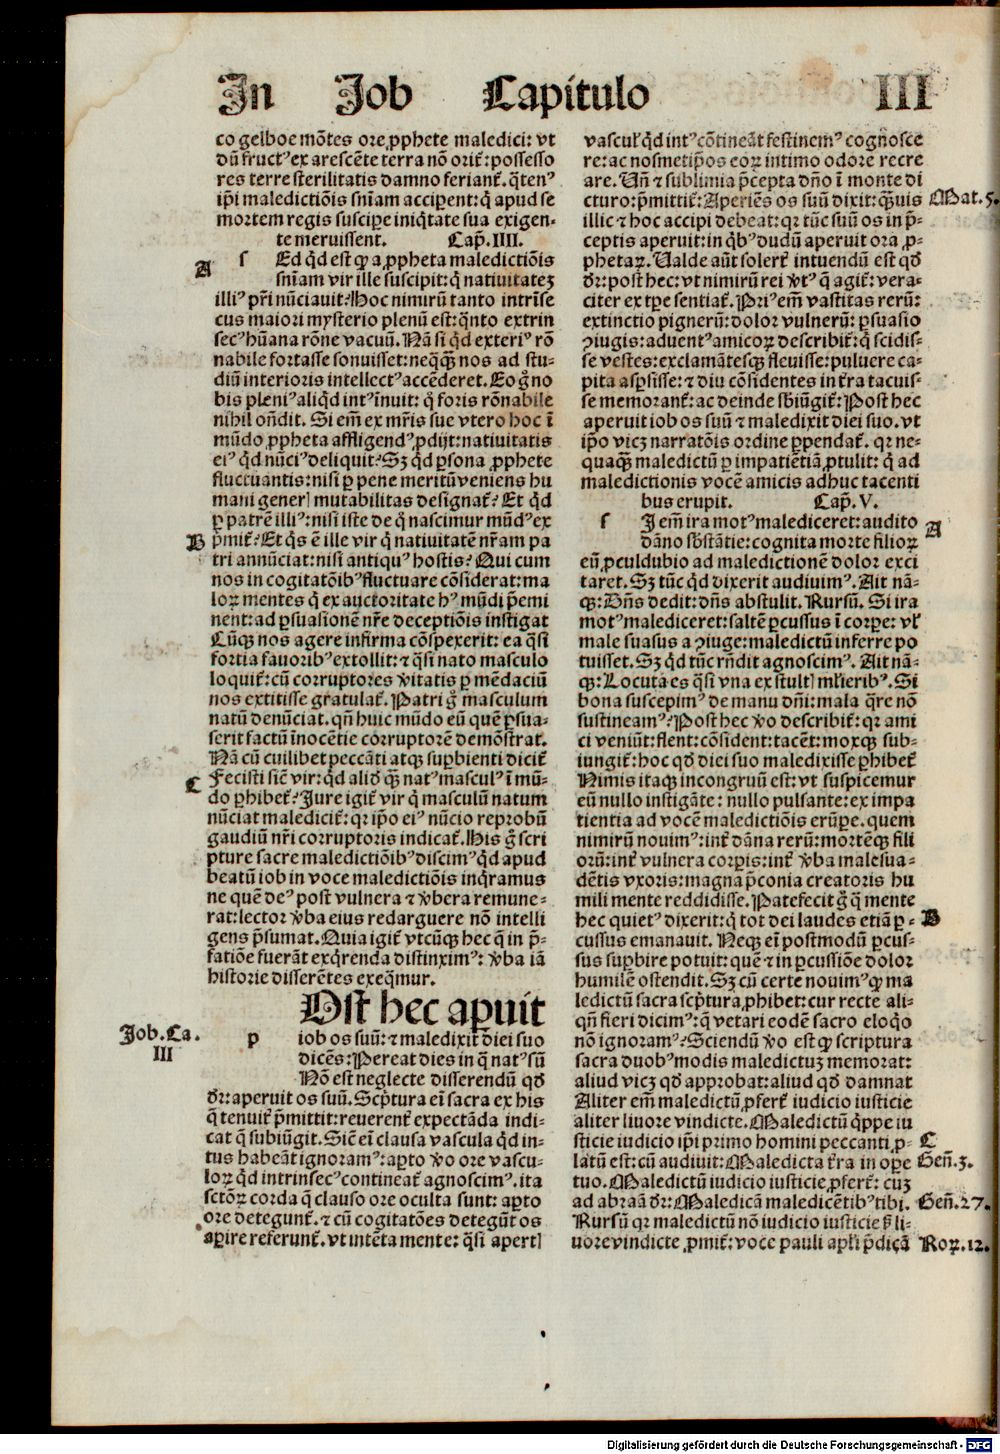 In Job Capitulo III
co gelboe mōtes ore ꝓphete maledici: vt
dū fruct⁹ ex arescēte terra nō orit᷑: possesso
res terre sterilitatis damno feriant᷑. q̄ten⁹
ip̄i maledictiōis sn̄iam acciperent: q̄ apud se
mortem regis suscipe iniq̄tate sua exigen-
te meruissent. Cap̄. IIII.
A
s Ed q̄d est ꝙ a ꝓpheta maledictiōis
sn̄iam vir ille suscipit: q̄ nativitatez
illi⁹ pr̄i nūciauit? Hoc nimirū tanto intrīse
cus maiori mysterio plenū est: q̄nto extrin
sec⁹ hūana rōne vacuū. Nā si q̄d exteri⁹ rō
nabile fortasse sonuisset: neqq̄ꝫ nos ad stu-
diū interioris intellect⁹ accēderet. Eo gͦ no
bis pleni⁹ aliq̄d int⁹ īnuit: q̄ foris rōnabile
nihil on̄dit. Si em̄ ex mr̄is sue vtero hoc ī
mūdo ꝓpheta affligend⁹ ꝓdijt: nativitatis
ei⁹ q̄d nūci⁹ deliquit? Sꝫ q̄d ꝑsona ꝓphete
fluctuantis: nisi ꝑ pene meritū veniens hu
mani generꝭ mutabilitas designat᷑? Et q̄d
ꝑ patrē illi⁹: nisi iste de q̄ nascimur mūd⁹ ex
B
p̄mit᷑? Et q̄s ē ille vir q̄ nativitatē nr̄am pa
tri annūciat: nisi antiqu⁹ hostis? Qui cum
nos in cogitatōib⁹ fluctuare cōsiderat: ma
loꝝ mentes q̄ ex auctoritate h⁹ mūdi p̄emi
nent: ad ꝑsuasionē nr̄e deceptiōis instigat
Cūqꝫ nos agere infirma cōspexerit: ea q̄si
fortia fauorib⁹ extollit: ⁊ q̄si nato masculo
loquit᷑: cū corruptores v̄itatis ꝑ mēdaciū
nos extitisse gratulat᷑. Patri gͦ masculum
natū denūciat. qn̄ huic mūdo eū quē ꝑsua-
serit factū īnocētie corruptorē demōstrat.
Nā cū cuilibet peccāti atqꝫ suꝑbienti dicit᷑
C
Fecisti siē vir: q̄d aliō q̄ꝫ nat⁹ mascul⁹ ī mū-
do ꝑhibet᷑? Jure igit᷑ vir q̄ masculū natum
nūciat maledicit᷑: qꝛ ip̄o ei⁹ nūcio reprobū
gaudiū nr̄i corruptoris indicat᷑. His gͦ scri
pture sacre maledictiōib⁹ discim⁹ q̄d apud
beatū iob in voce maledictiōis inq̄ramus
ne quē de⁹ post vulnera ⁊ v̄bera remune-
rat: lector v̄ba eius redarguere nō intelli
gens p̄sumat. Quia igit᷑ vtcūqꝫ hec q̄ in p̄-
fatiōe fuerāt exq̄renda distinxim⁹: v̄ba iā
historie disserētes exeq̄mur.
Job. Ca.
III
p Ost hec aꝑuit
iob os suū: ⁊ maledixit diei suo
dicēs: Pereat dies in q̄ nat⁹ sū
Nō est neglecte disserendū qd̄
dr̄: aperuit os suū. Scp̄tura ei sacra ex his
q̄ tenuit᷑ p̄mittit: reuerent᷑ expectāda indi-
cat q̄ subiūgit. Siē ei clausa vascula q̄d in-
tus habeāt ignoram⁹: aꝑto v̄o ore vascu-
loꝝ q̄d intrinsec⁹ contineat᷑ agnoscim⁹. ita
sctōꝝ corda q̄ clauso ore oculta sunt: aꝑto
ore detegunt᷑. ⁊ cū cogitatōes detegūt os
aꝑire referunt᷑. vt intēta mente: q̄si apertꝭ
vascul᷑ q̄d int⁹ cōtineāt festinem⁹ cognosce
re: ac nosmetip̄os eoꝝ intimo odore recre
are. Un̄ ⁊ sublimia p̄cepta dn̄o ī monte di
cturo: p̄mittit᷑: Aperiēs os suū dixit: q̄ꝫuis
Mat. 5.
illic ⁊ hoc accipi debeat: qꝛ tūc suū os in p̄-
ceptis aperuit: in q̄b⁹ dudū aperuit ora ꝓ-
phetaꝝ. Ualde aūt solert᷑ intuendū est qd̄
dr̄: post hec: vt nimirū rei v̄t⁹ q̄ agit᷑: vera-
citer ex tꝑe sentiat᷑. Pri⁹ em̄ vastitas rerū:
extinctio pignerū: dolor vulnerū: ꝑsuasio
ꝯiugis: aduent⁹ amicoꝝ describit᷑: q̄ scidis-
se vestes: exclamātesqꝫ fleuisse: puluere ca-
pita asꝑsisse: ⁊ diu cōsidentes in t᷑ra tacuis-
se memorant᷑: ac deinde sb̄iūgit᷑: Post hec
aperuit iob os suū ⁊ maledixit diei suo. vt
ip̄o vicꝫ narratōis ordine ꝑpendat᷑. qꝛ ne-
quaq̄ꝫ maledictū ꝑ impatiētiā ꝓtulit: q̄ ad
maledictionis vocē amicis adhuc tacenti
bus erupit. Cap̄. V.
A
s I em̄ ira mot⁹ malediceret: audito
dāno sb̄stātie: cognita morte filioꝝ
eū ꝓculdubio ad maledictionē dolor exci
taret. Sꝫ tūc q̄d dixerit audiuim⁹. Ait nā-
qꝫ: Dn̄s dedit: dn̄s abstulit. Rursū. Si ira
mot⁹ malediceret: saltē ꝑcussus ī corpe: vl᷑
male suasus a ꝯiuge: maledictū inferre po
tuisset. Sꝫ q̄d tūc rn̄dit agnoscim⁹. Ait nā-
qꝫ: Locuta es q̄si vna ex stultꝭ ml᷑ierib⁹. Si
bona suscepim⁹ de manu dn̄i: mala q̄re nō
sustineam⁹? Post hec v̄o describit᷑: qꝛ ami
ci veniūt: flent: cōsident: tacēt: moxqꝫ sub-
iungit᷑: hoc qd̄ diei suo maledixisse ꝑhibet᷑
Nimis itaqꝫ incongruū est: vt suspicemur
eū nullo instigāte: nullo pulsante: ex impa
tientia ad vocē maledictiōis erūpe. quem
nimirū nouim⁹: int᷑ dāna rerū: mortēqꝫ fili
orū: int᷑ vulnera corꝑis: int᷑ v̄ba malesua-
dētis vxoris: magna p̄conia creatoris hu
mili mente reddidisse. Patefecit gͦ q̄ mente
hec quiet⁹ dixerit: q̄ tot dei laudes etiā ꝑ-
B
cussus emanauit. Neqꝫ ei postmodū ꝑcus-
sus suꝑbire potuit: quē ⁊ in ꝑcussiōe dolor
humilē ostendit. Sꝫ cū certe nouim⁹ ꝙ ma
ledictū sacra scp̄tura ꝓhibet: cur recte ali-
qn̄ fieri dicim⁹: q̄ vetari eodē sacro eloq̄o
nō ignoram⁹? Sciendū v̄o est ꝙ scriptura
sacra duob⁹ modis maledictuꝫ memorat:
aliud vicꝫ qd̄ approbat: aliud qd̄ damnat
Aliter em̄ maledictū ꝓfert᷑ iudicio iusticie
aliter liuore vindicte. Maledictū q̄ppe iu
sticie iudicio ip̄i primo homini peccanti ꝓ-
C
latū est: cū audiuit: Maledicta t᷑ra in oꝑe
Gen̄. 3.
tuo. Maledictū iudicio iusticie ꝓfert᷑: cuꝫ
ad abraā dr̄: Maledicā maledicētib⁹ tibi.
Gen̄. 27.
Rursū qꝛ maledictū nō iudicio iusticie sꝫ li-
uore vindicte ꝓmit᷑: voce pauli apl᷑i p̄dicā
Roꝝ. 12.
Digitalisierung gefördert durch die Deutsche Forschungsgemeinschaft - DFG